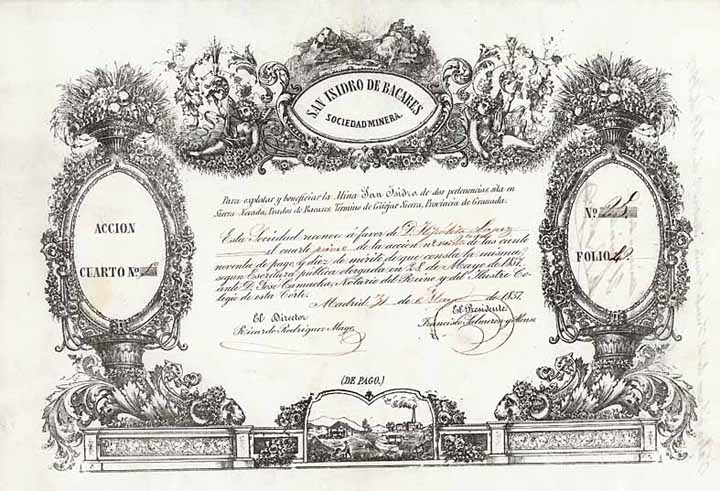 SAN ISIDRO DE BACARES
SOCIEDAD MINERA.
Para explotar y beneficiar la Mina San Isidro, de dos pertenencias sita en
Sierra-Nevada, Prados de Bacares, Término de Güejar Sierra, Provincia de Granada.
ACCION
CUARTO Nº
Nº 25
FOLIO
Esta Sociedad reconoce á favor de D. Hipólito Lopez
el cuarto primero de la acción nº veinte de las ciento
noventa de pago y diez de mérito de que consta la misma,
segun Escritura pública otorgada en 28 de Mayo de 1857,
ante D. José Camacha, Notario del Reino y del Ilustre Co-
legio de esta Corte.
Madrid 31 de Mayo de 1857.
El Director
El Presidente
Ricardo Rodriguez Mayo
Francisco Salmeron y Alonso
(DE PAGO.)